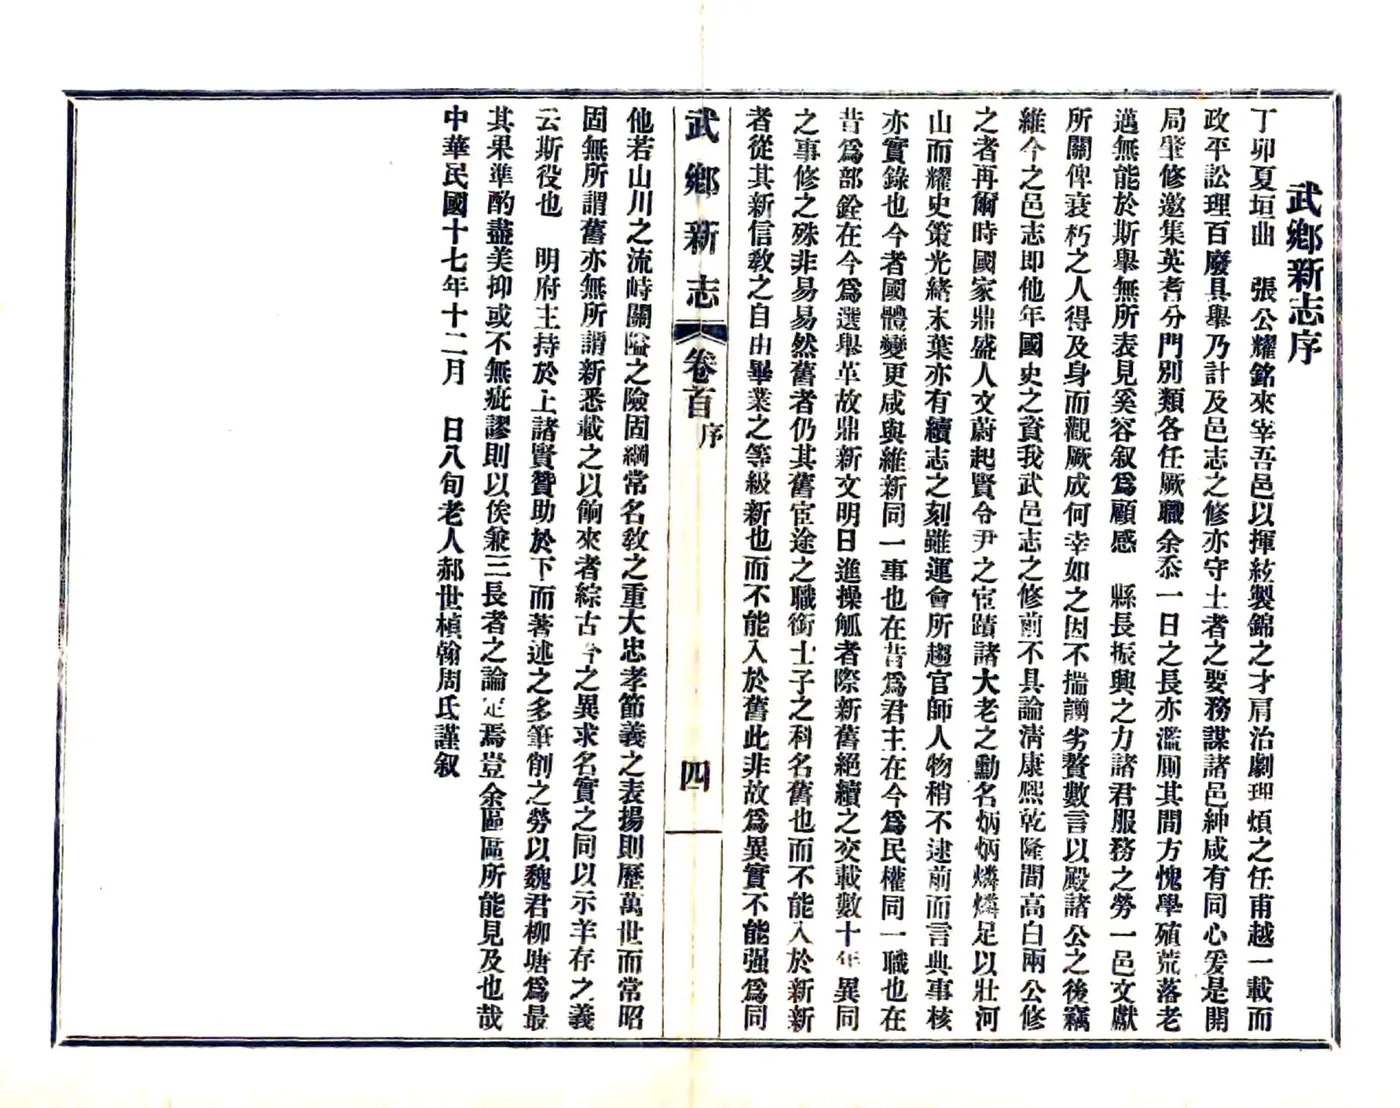 武鄕新志序
丁卯夏垣曲　張公耀銘來宰吾邑以揮絃製錦之才肩治劇理煩之任甫越一載而
政平訟理百廢具舉乃計及邑志之修亦守土者之要務謀諸邑紳咸有同心爰是開
局肇修邀集英耆分門別類各任厥職余忝一日之長亦濫厠其間方愧學殖荒落老
邁無能於斯舉無所表見奚容叙爲顧感　縣長振興之力諸君服務之勞一邑文獻
所關俾衰朽之人得及身而觀厥成何幸如之因不揣譾劣贅數言以殿諸公之後竊
維今之邑志卽他年國史之資我武邑志之修前不具論淸康熙乾隆間高白兩公修
之者再爾時國家鼎盛人文蔚起賢令尹之宦蹟諸大老之勳名炳炳燐燐足以壯河
山而耀史策光緒末葉亦有續志之刻雖運會所趨官師人物稍不逮前而言典事核
亦實錄也今者國體變更咸與維新同一事也在昔爲君主在今爲民權同一職也在
昔爲部銓在今爲選舉革故鼎新文明日進操觚者際新舊絕續之交載數十年異同
之事修之殊非易易然舊者仍其舊宦途之職銜士子之科名舊也而不能入於新新
者從其新信敎之自由畢業之等級新也而不能入於舊此非故爲異實不能强爲同
武鄕新志
卷首
序
四
他若山川之流峙關隘之險固綱常名敎之重大忠孝節義之表揚則歷萬世而常昭
固無所謂舊亦無所謂新悉載之以餉來者綜古今之異求名實之同以示羊存之義
云斯役也　明府主持於上諸賢贊助於下而著述之多筆削之勞以魏君柳塘爲最
其果準酌盡美抑或不無疵謬則以俟兼三長者之論定焉豈余區區所能見及也哉
中華民國十七年十二月　日八旬老人郝世楨翰周氏謹叙